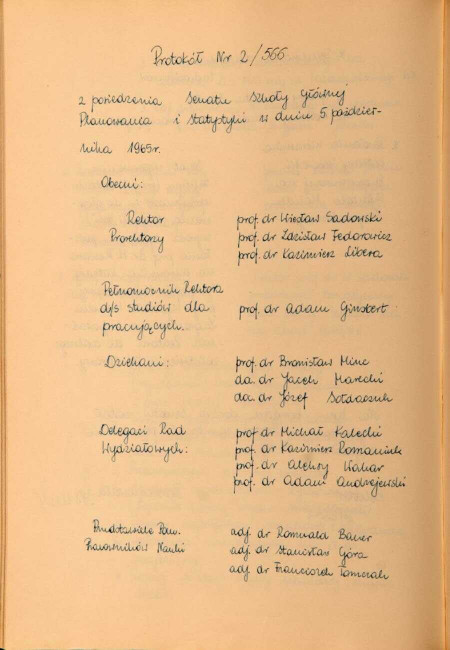 Protokół Nr 2/566
z posiedzenia Senatu Szkoły Głównej
Planowania i Statystyki w dniu 5. paździer-
nika 1965r.
Obecni:
Rektor prof. dr Wiesław Sadowski
Prorektorzy prof. dr Zdzisław Fedorowicz
prof. dr Kazimierz Libera
Pełnomocnik Rektora
d/s studiów dla prof. dr Adam Ginsbert
pracujących.
Dziekani: prof. dr Bronisław Minc
dr Jacek Marecki
dr Józef Sołdaczuk
Delegaci Rad prof. dr Michał Kalecki
Wydziałowych: prof. dr Kazimierz Romaniuk
prof. dr Aleksy Wakar
prof. dr Adam Andrzejewski
Pom. adj. dr Romuald Bauer
Pracowników Nauki adj. dr Stanisław Góra
adj. dr Franciszek Tomczak